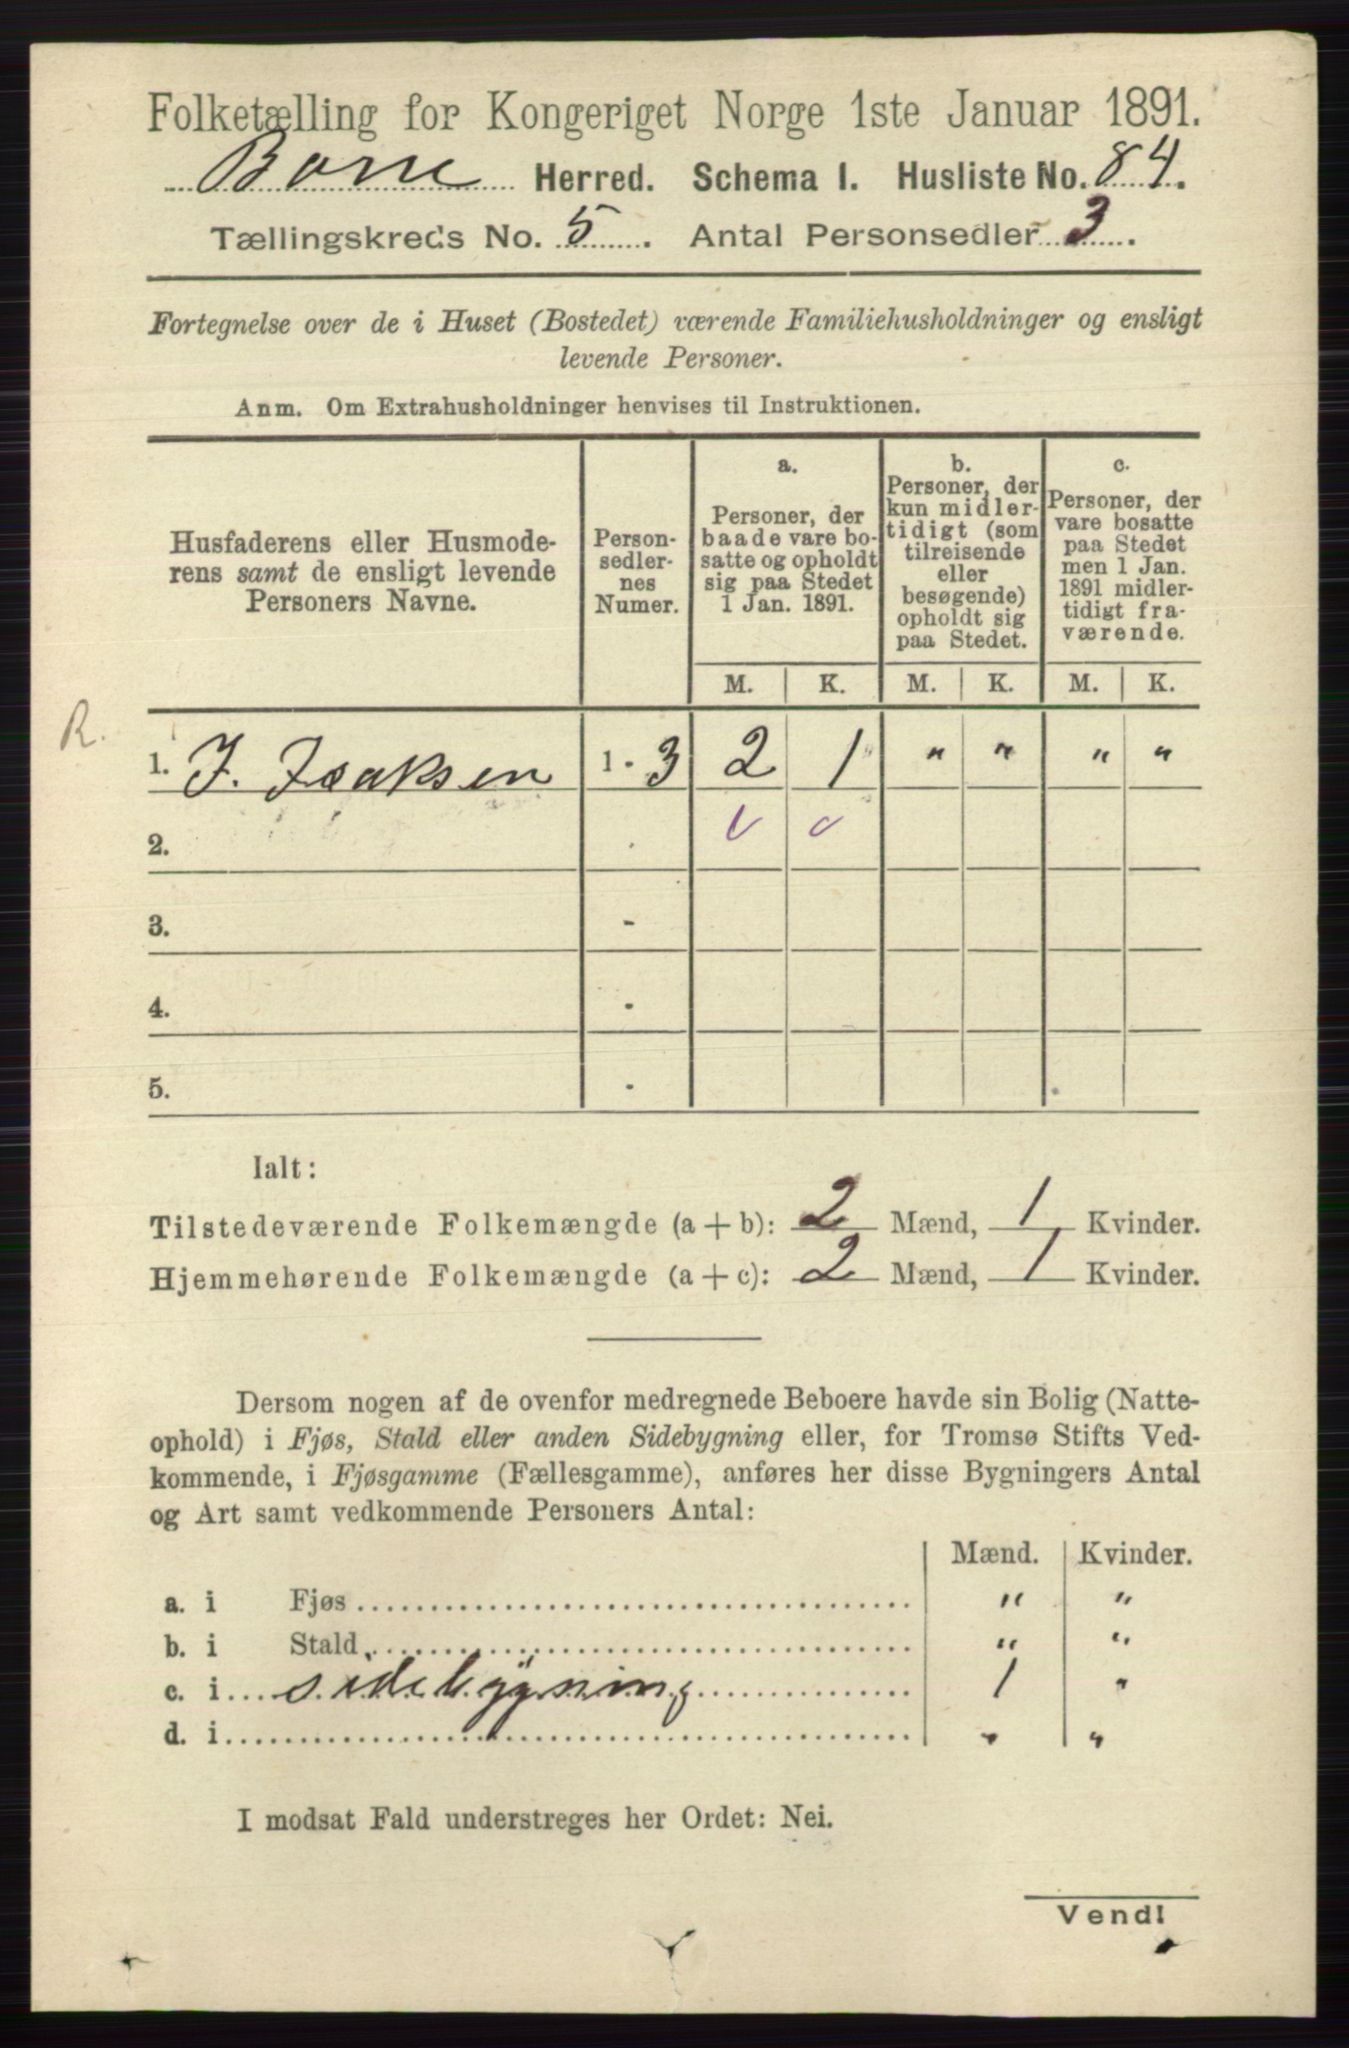 Folketælling for Kongeriget Norge 1ste Januar 1891.
Borre Herred. Schema I. Husliste No. 84.
Tællingskreds No. 5. Antal Personsedler 3.
Fortegnelse over de i Huset (Bostedet) værende Familiehusholdninger og ensligt
levende Personer.
Anm. Om Extrahusholdninger henvises til Instruktionen.
Husfaderens eller Husmode-
rens samt de ensligt levende
Personers Navne.
Person-
sedler-
nes
Numer.
a.
Personer, der
baade vare bo-
satte og opholdt
sig paa Stedet
1 Jan. 1891.
b.
Personer, der
kun midler-
tidigt (som
tilreisende
eller
besøgende)
opholdt sig
paa Stedet.
c.
Personer, der
vare bosatte
paa Stedet
men 1 Jan.
1891 midler-
tidigt fra-
værende.
M. K. M. K. M. K.
R.
1. J. Isaksen 1 - 3 2 1 " " " "
2. -
3. -
4. -
5. -
Ialt:
Tilstedeværende Folkemængde (a + b): 2 Mænd, 1 Kvinder.
Hjemmehørende Folkemængde (a + c): 2 Mænd, 1 Kvinder.
Dersom nogen af de ovenfor medregnede Beboere havde sin Bolig (Natte-
ophold) i Fjøs, Stald eller anden Sidebygning eller, for Tromsø Stifts Ved-
kommende, i Fjøsgamme (Fællesgamme), anføres her disse Bygningers Antal
og Art samt vedkommende Personers Antal:
Mænd. Kvinder.
a. i Fjøs " "
b. i Stald " "
c. i sidebygning 1 "
d. i " "
I modsat Fald understreges her Ordet: Nei.
Vend!